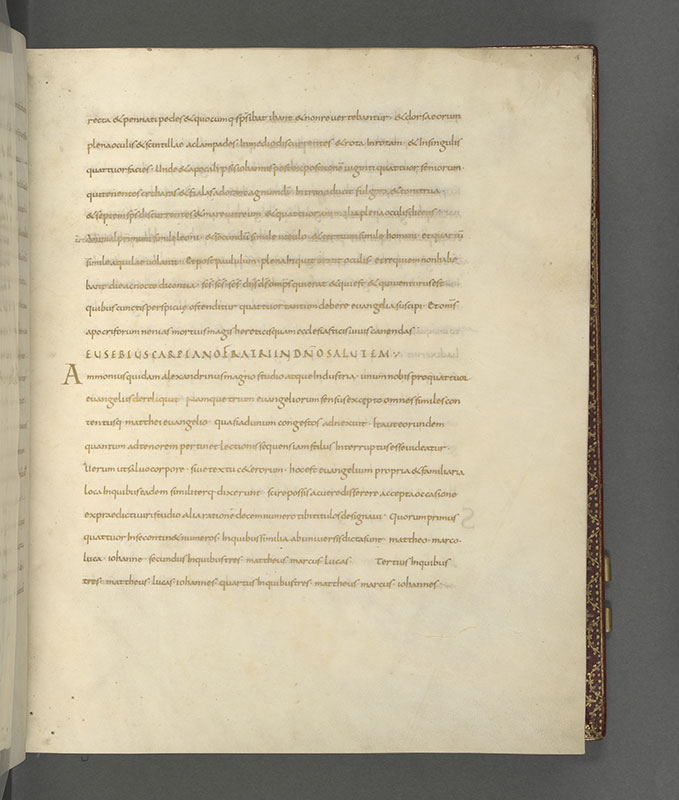 recta & pennati pedes & quocumq; sp̅s ibat ibant & non revertebantur · & dorsa eorum
plena oculis & scintillae ac lampades · In medio discurrentes & rota In rotam · & In singulis
quattuor facies · Unde & apocalipsis iohannis post expositionē viginti quattuor seniorum ·
qui tenentes citharas & fialas adorant agnum dī · Introducit fulgora & tonitrua ·
& septem sp̅s discurrentes & mare vitreum & quattuor animalia plena oculis dicens ·
animal primum simile leoni · & secundū simile vitulo · & tertium simile homini · et quartū
simile aquilae volanti · Et post paululum · plena Inquit erant oculis · et requiem non habe
bant die ac nocte dicentia · sc̅s sc̅s sc̅s dn̅s ds̅ omps̅ qui erat & qui est · & qui venturus est ·
quibus cunctis perspicue ostenditur quattuor tantum debere evangelia suscipi · Et oms̅
apocriforum nenias mortuis magis hereticis quam ecclesiasticis vivis canendas
EUSEBIUS CARPIANO FRATRI IN DN̅O SALUTEM
Ammonius quidam alexandrinus magno studio atque Industria · unum nobis pro quattuor
evangeliis dereliquit · Namque trium evangeliorum sensus excepto omnes similes con
tentusq; matthei evangelio · quasi ad unum congestos adnexuit · Ita ut eorundem
quantum ad tenorem pertinet lectionis sequens iam stilus Interruptus esse videatur ·
Verum ut salvo corpore · sive textu c&erorum · hoc est evangelium propria & familiaria
loca In quibus eadem similiterq; dixerunt scire possis ac vere disserere accepta occasione
ex praedicti viri studio alia ratione decem numero tibi titulos designavi · Quorum primus
quattuor In se contin& numeros · In quibus similia ab universis dicta sunt mattheo · marco ·
luca · iohanne · secundus In quibus tres · mattheus marcus · lucas · Tertius In quibus
tres · mattheus · lucas · iohannes · quartus In quibus tres · mattheus marcus · iohannes ·